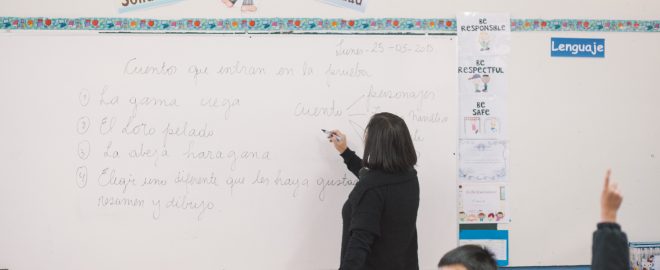 Lunes-25-05-
Cuentos que entran en la prueba
① La gama ciega
El Loro pelado
La abeja haragana
④ Elegir uno diferente que les haya gusta
resumen y dibujo
cuento
personajes
BE
RESPONSIBLE
BE
RESPECTFUL
BE
SAFE
Lenguaje